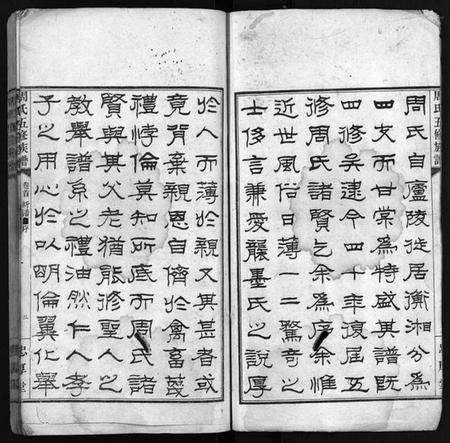 周氏五修族譜
周氏自廬陵徙居衡湘分為
四支而甘棠為特盛其譜既
四修矣逮今四十年復屆五
修周氏諸賢乞余為序余惟
近世風俗日薄一二驚奇之
士侈言兼愛襲墨氏之說厚
於人而薄於親又其甚者或
竟背棄親恩自儕於禽畜蔑
禮悖倫莫知所底而周氏諸
賢與其父老猶能修聖人之
教舉譜系之禮油然仁人孝
子之用心於以明倫翼化舉
周氏五修族譜
卷首
序
三
忠厚堂